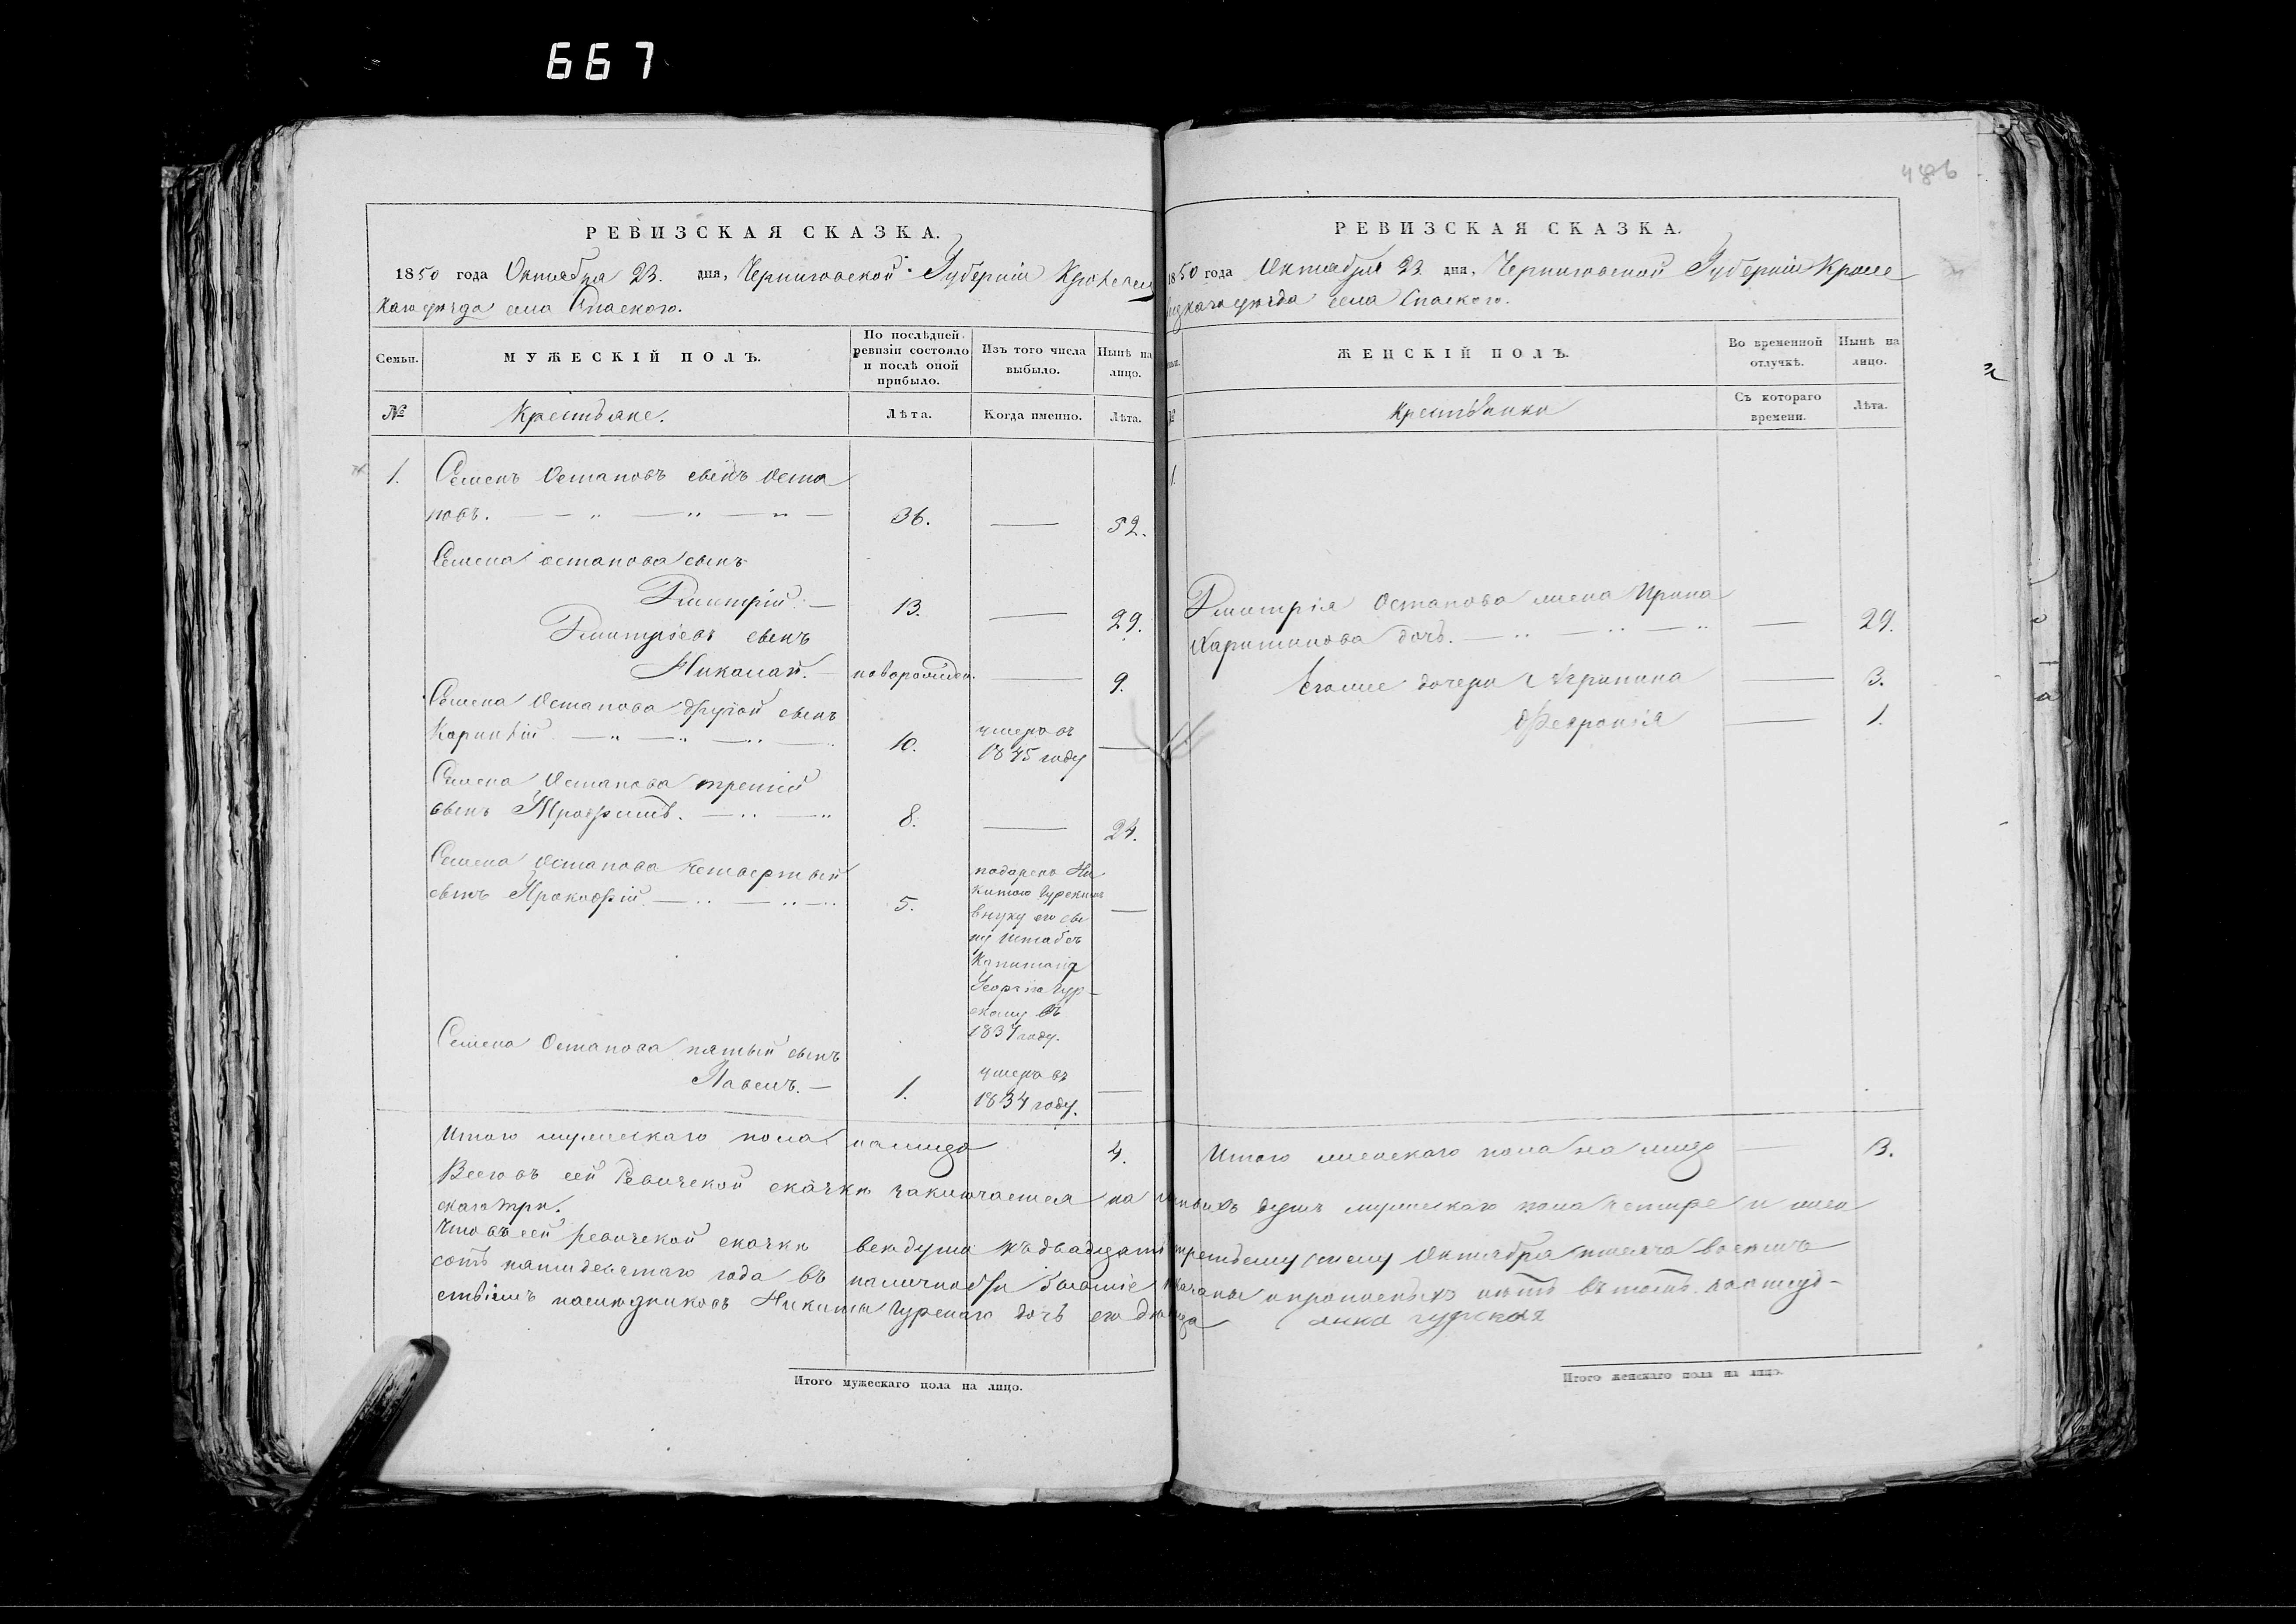 667
486
РЕВИЗСКАЯ СКАЗКА.
1850 года Октября 23. дня, Черниговской Губерніи Кролевец
каго уѣзда села Спаского.
Семьи.
МУЖЕСКІЙ ПОЛЪ.
По послѣдней
ревизіи состояло
и послѣ оной
прибыло.
Изъ того числа
выбыло.
Нынѣ на
лицо.
№
Крестьяне.
Лѣта.
Когда именно.
Лѣта.
1.
Семенъ Остаповъ сынъ Оста
повъ.
36.
52.
Семена остапова сынъ
Дмитрій.
13.
29.
Дмитріевъ сынъ
Николай.
новорожден.
9.
Семена Остапова другой сынъ
10.
умеръ въ
1845 году
Семена Остапова третій
сынъ Трофимъ.
8.
24.
Семена Остапова четвертый
сынъ Прокофій.
5.
подаренъ Ни
китою Гурскимъ
внуку его сы
ну штабсъ
Капитана
Георгію Гур-
скому въ
1837 году.
Семена Остапова пятый сынъ
Павелъ.
1.
умеръ въ
1834 году.
Итого мужескаго пола налицо
4.
РЕВИЗСКАЯ СКАЗКА.
1850 года Октября 23 дня, Черниговской Губерніи Кроле
вецкаго уѣзда села Спаского.
ЖЕНСКІЙ ПОЛЪ.
Во временной
отлучкѣ.
Нынѣ на
лицо.
№
Крестьянки
Съ котораго
времени.
Лѣта.
1.
Дмитрія Остапова жена Ирина
Харитонова дочь.
29.
Егоже дочери Агрипина
3.
Февронія
1.
Итого женскаго пола на лицо
3.
Всего въ сей Ревизской сказкѣ заключается на личныхъ душъ мужескаго пола четыре и жен
скаго три.
Что въ сей ревизской сказкѣ всѣ души къ двадцать третьему числу Октября тысяча восемь
сотъ пятидесятаго года въ наличности бывшіе показаны и прописныхъ нѣтъ въ томъ
наслѣдниковъ Никиты Гурскаго дочь его девица Анна Гурская
Итого мужескаго пола на лицо.
Итого женскаго пола на лицо.